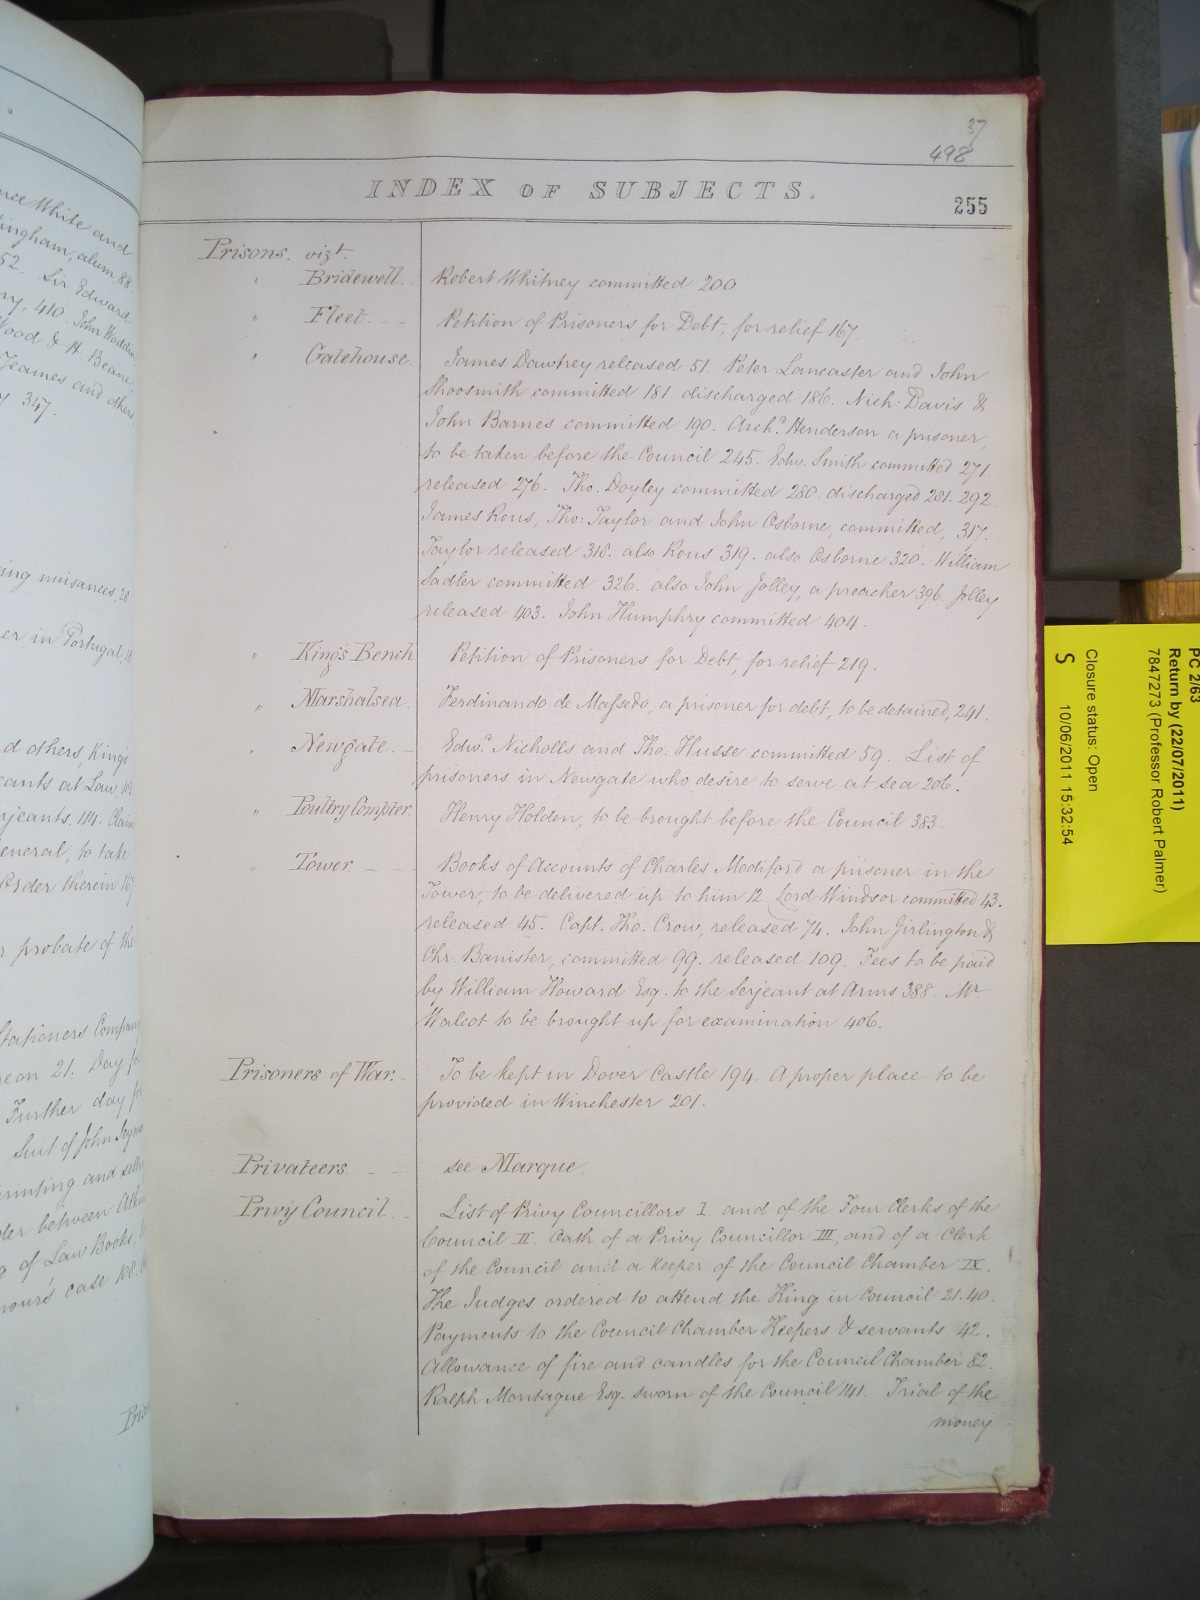 37
498
INDEX OF SUBJECTS.
255
Prisons. vizt.
" Bridewell. Robert Whitney committed 200
" Fleet. Petition of Prisoners for Debt, for relief 167.
" Gatehouse. James Dawtrey released 51. Peter Lancaster and John
Shoosmith committed 181 discharged 186. Nich: Davis &
John Barnes committed 190. Archd. Henderson a prisoner,
to be taken before the Council 245. Edw. Smith committed 271.
released 276. Tho. Doyley committed 280. discharged 281. 292.
James Rous, Tho: Taylor and John Osborne, committed, 317.
Taylor released 318. also Rous 319. also Osborne 320. William
Sadler committed 326. also John Jolley, a preacher 396. Jolley
released 403. John Humphry committed 404.
" Kings Bench Petition of Prisoners for Debt, for relief 219.
" Marshalsea. Ferdinando de Massedo, a prisoner for debt, to be detained, 241.
" Newgate. Edwd. Nicholls and Tho. Husse committed 59. List of
prisoners in Newgate who desire to serve at sea 206.
" Poultry Compter. Henry Holden, to be brought before the Council 383.
" Tower. Books of Accounts of Charles Modiford a prisoner in the
Tower, to be delivered up to him 12. Lord Windsor committed 43.
released 45. Capt. Tho. Crow, released 74. John Girlington &
Chr. Banister, committed 99. released 109. Fees to be paid
by William Howard Esq. to the Serjeant at Arms 388. Mr.
Walcot to be brought up for examination 406.
Prisoners of War. To be kept in Dover Castle 194. A proper place to be
provided in Winchester 201.
Privateers see Marque.
Privy Council. List of Privy Councillors I. and of the Four Clerks of the
Council II. Oath of a Privy Councillor III, and of a Clerk
of the Council and a Keeper of the Council Chamber IX.
The Judges ordered to attend the King in Council 21. 40.
Payments to the Council Chamber Keepers & servants 42.
Allowance of fire and candles for the Council Chamber 82.
Ralph Montague Esq. sworn of the Council 141. Trial of the
money
White and
ingham, alum. 88.
52. Sir Edward
ry, 410. John
Wood & H. Beane,
Jeames and others
347.
ing nuisances, 28.
er in Portugal,
d others, King's
eants at Law
rjeants. 114.
eneral, to take
Order therein
r probate of the
Stationers Company
21. Day
Further day
Suit of John
printing and
der between
of Law Books,
case 108.
PC 2/63
Return by (22/07/2011)
7847273 (Professor Robert Palmer)
Closure status: Open
S 10/06/2011 15:32:54